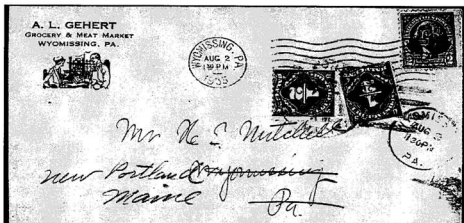 A. L. GEHERT
GROCERY & MEAT MARKET
WYOMISSING, PA.
WYOMISSING, PA.
AUG 2
PM
1935
AUG
PM
PA.
Mr H Mitchell
New Portland Wyomissing
Maine Pa.